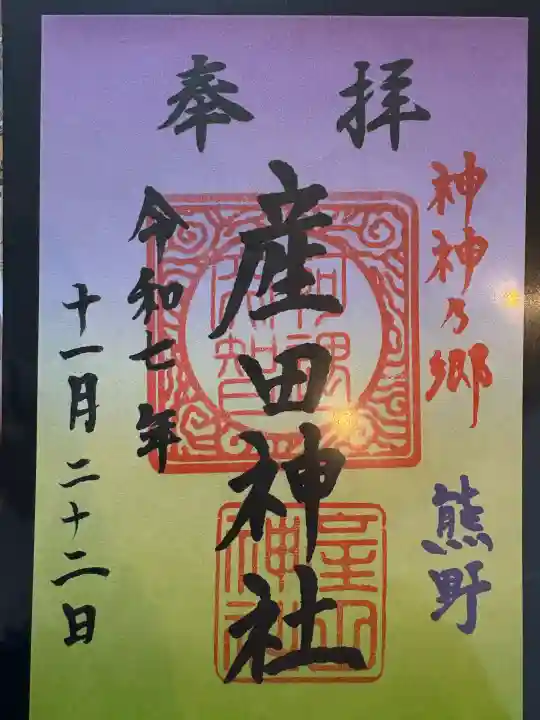 奉拝
神神乃郷
熊野
産田神社
令和七年
十一月二十二日